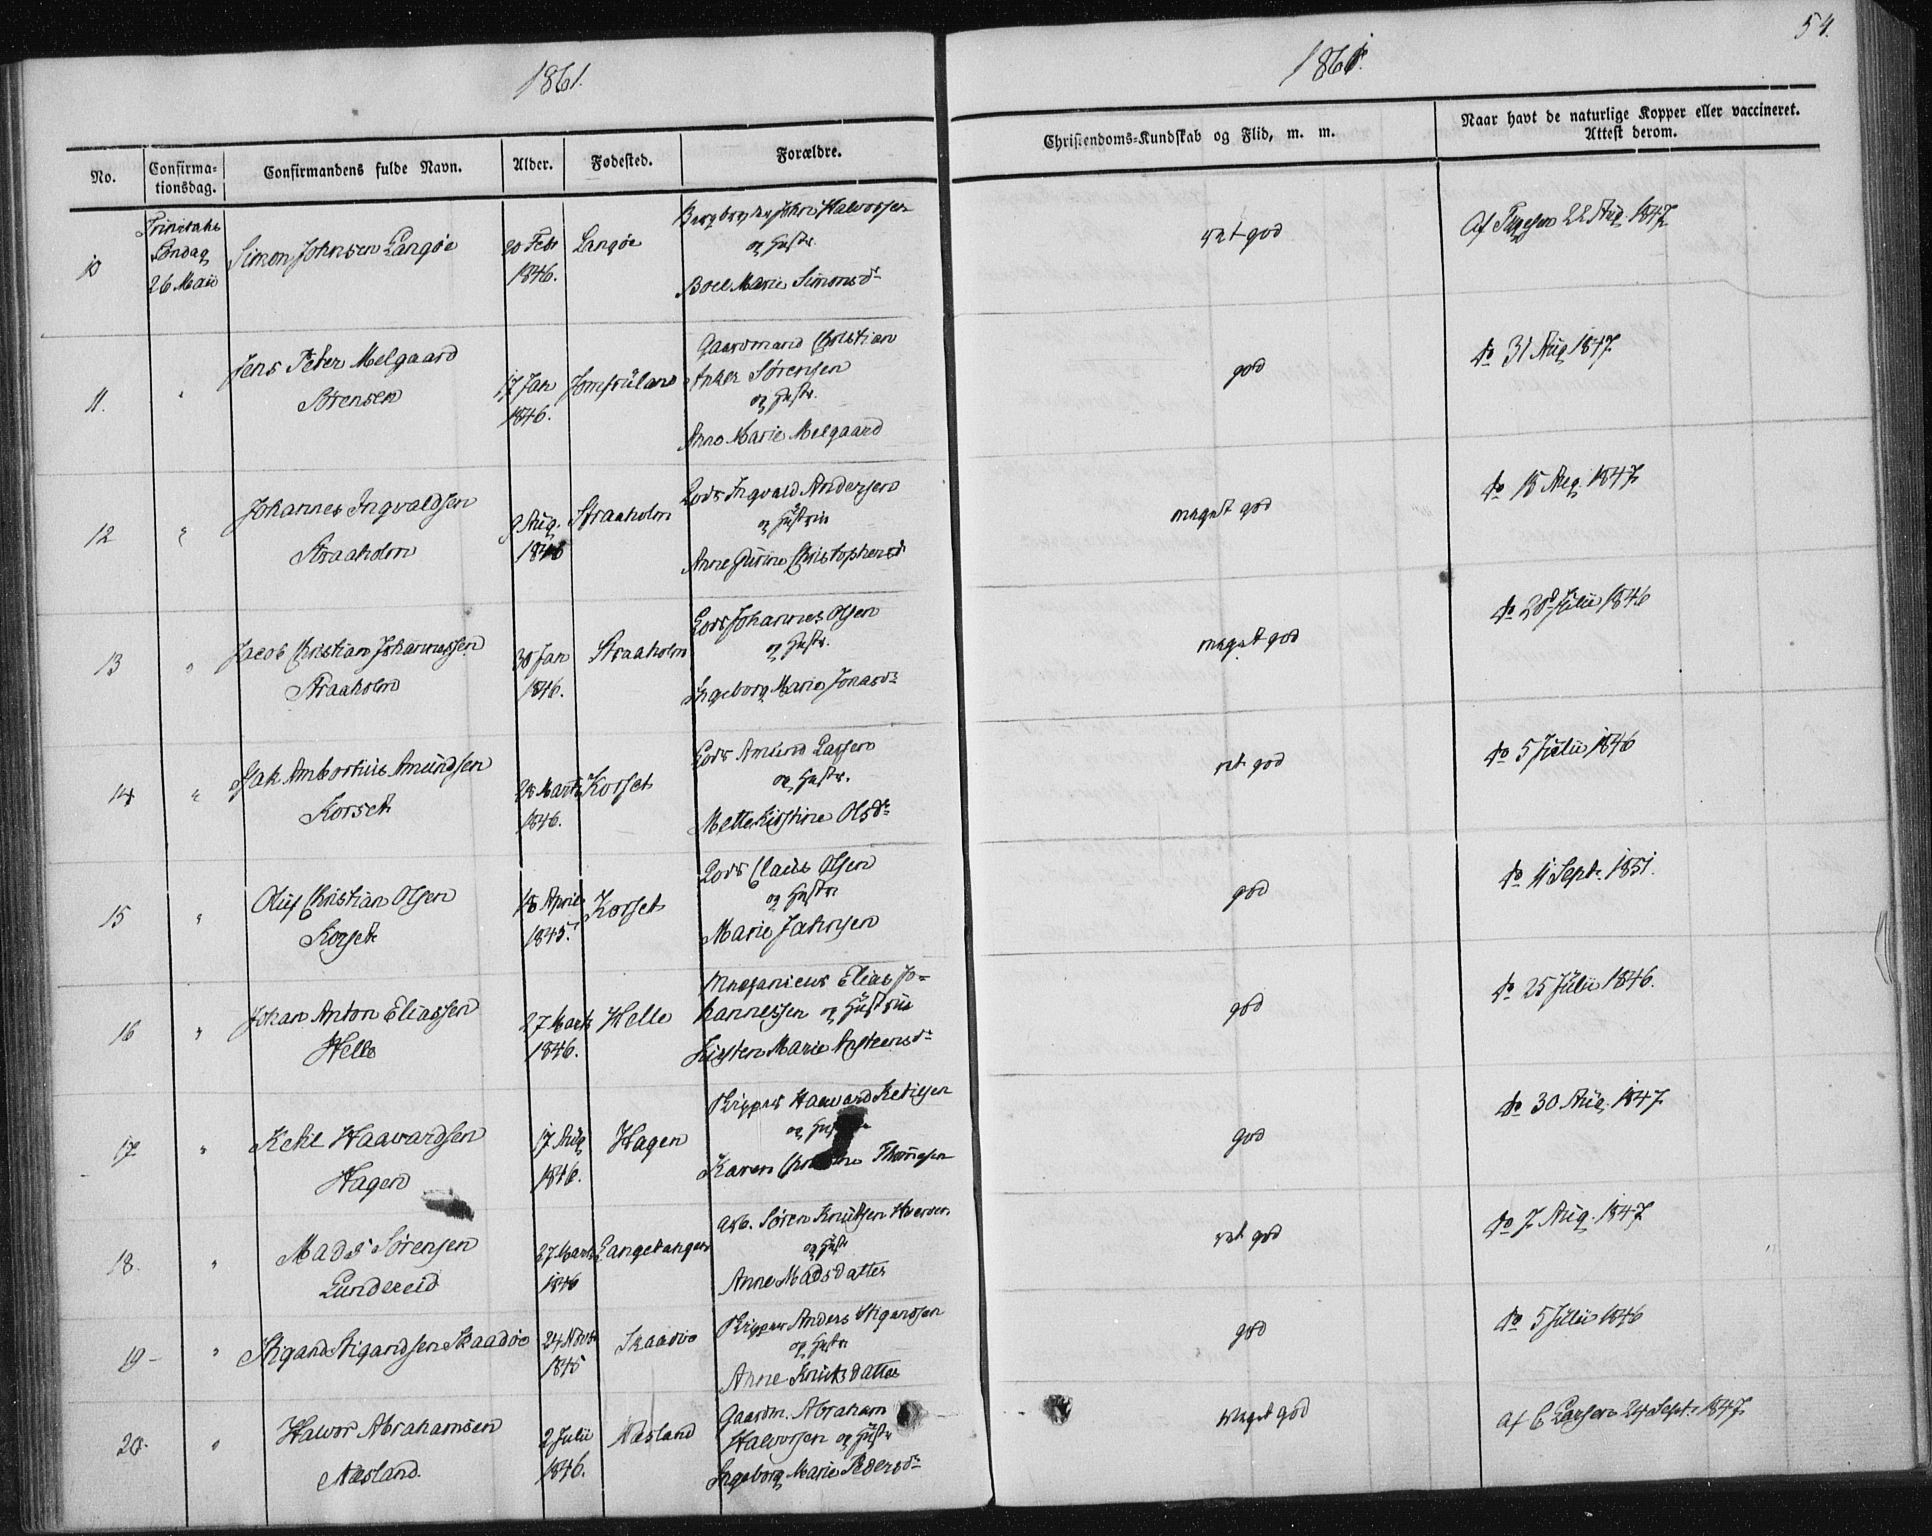 1861.
1861.
54.
No.
Confirma-
tionsdag.
Confirmandens fulde Navn.
Alder.
Fødested.
Forældre.
Christendoms-Kundskab og Flid, m. m.
Naar havt de naturlige Kopper eller vaccineret.
Attest derom.
10
Trinitatis
Søndag
26 Maii
Simon Johnsen Langøe
20 Febr
1846.
Langøe
John Halvorsen
og Hustr.
Boel Marie Simonsdr
ret god
Af Thygesen 22 Aug. 1847
11.
"
Jens Peter Melgaard
Sørensen
17 Jan
1846.
Jomfruland
Gaardmand Christian
Anker Sørensen
og Hustr.
Anne Marie Melgaard
god
do 31 Aug 1847
12
"
Johannes Ingvaldsen
Straaholm
9 Aug.
1846
Straaholm
Lods Ingvald Andersen
og Hustrue
Anne Gurine Christophersdr
meget god
do 15 Aug. 1847
13
"
Jacob Christian Johannessen
Straaholm
30 Jan
1846.
Straaholm
Lods Johannes Olsen
og Hustr.
Ingeborg Marie Jonasdr
meget god
do 28 Julii 1846
14
"
Isak Ambrosius Amundsen
Korset
28 Marts
1846.
Korset
Lods Amund Larsen
og Hustr.
Mette Kirstine Olsdr
ret god
do 5 Julii 1846
15
"
Oluf Christian Olsen
Korset
18 April
1845.
Korset
Lods Claus Olsen
og Hustr
Marie Jahnsen
god
do 11 Sept. 1851.
16
"
Johan Anton Eliassen
Helle
27 Marts
1846.
Helle
Mechanicus Elias Jo-
hannessen og Hustrue
Kirsten Marie Anstensdr
god
do 25 Julii 1846.
17
"
Ketil Haavardsen
Hagen
17 Aug
1846.
Hagen
Skipper Haavard Ketilsen
og
Karen Thomesen
god
do 30 Aug. 1847.
18
"
Mads Sørensen
Lundereid
27 Marts
1846
Langetangen
Arb. Søren Knutsen
og Hustr
Anne Madsdatter
ret god
do 7 Aug. 1847
19
"
Stigand Stigandsen Skaadøe
24 Novbr
1845
Skaadøe
Skipper Anders Stigandsen
og Hustr
Anne Knutsdatter
god
do 5 Julii 1846
20.
"
Halvor Abrahamsen
Næsland.
2 Julii
1846.
Næsland
Gaardm. Abraham
Halvorsen og Hustr
Ingeborg Marie Pedersdr
meget god
Af C Larsen 24 Sept. 1847